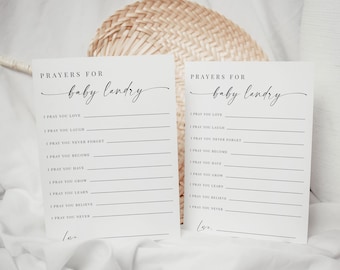 PRAYERS FOR
baby landry
I PRAY YOU LOVE
I PRAY YOU LAUGH
I PRAY YOU NEVER FORGET
I PRAY YOU BECOME
I PRAY YOU HAVE
I PRAY YOU GROW
I PRAY YOU LEARN
I PRAY YOU BELIEVE
I PRAY YOU NEVER
Love,
PRAYERS FOR
baby landry
I PRAY YOU LOVE
I PRAY YOU LAUGH
I PRAY YOU NEVER FORGET
I PRAY YOU BECOME
I PRAY YOU HAVE
I PRAY YOU GROW
I PRAY YOU LEARN
I PRAY YOU BELIEVE
I PRAY YOU NEVER
Love,